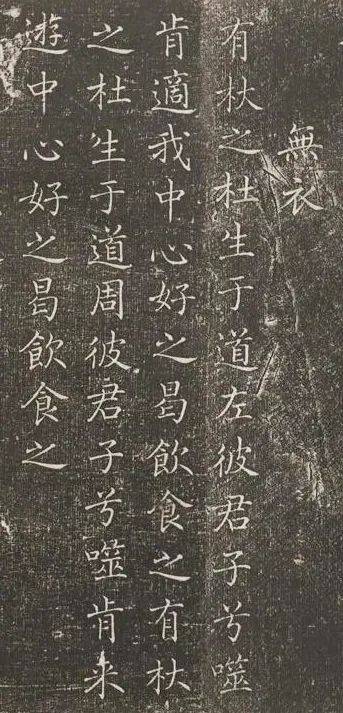 無衣
有杕之杜生于道左彼君子兮噬
肯適我中心好之曷飲食之有杕
之杜生于道周彼君子兮噬肯来
遊中心好之曷飲食之